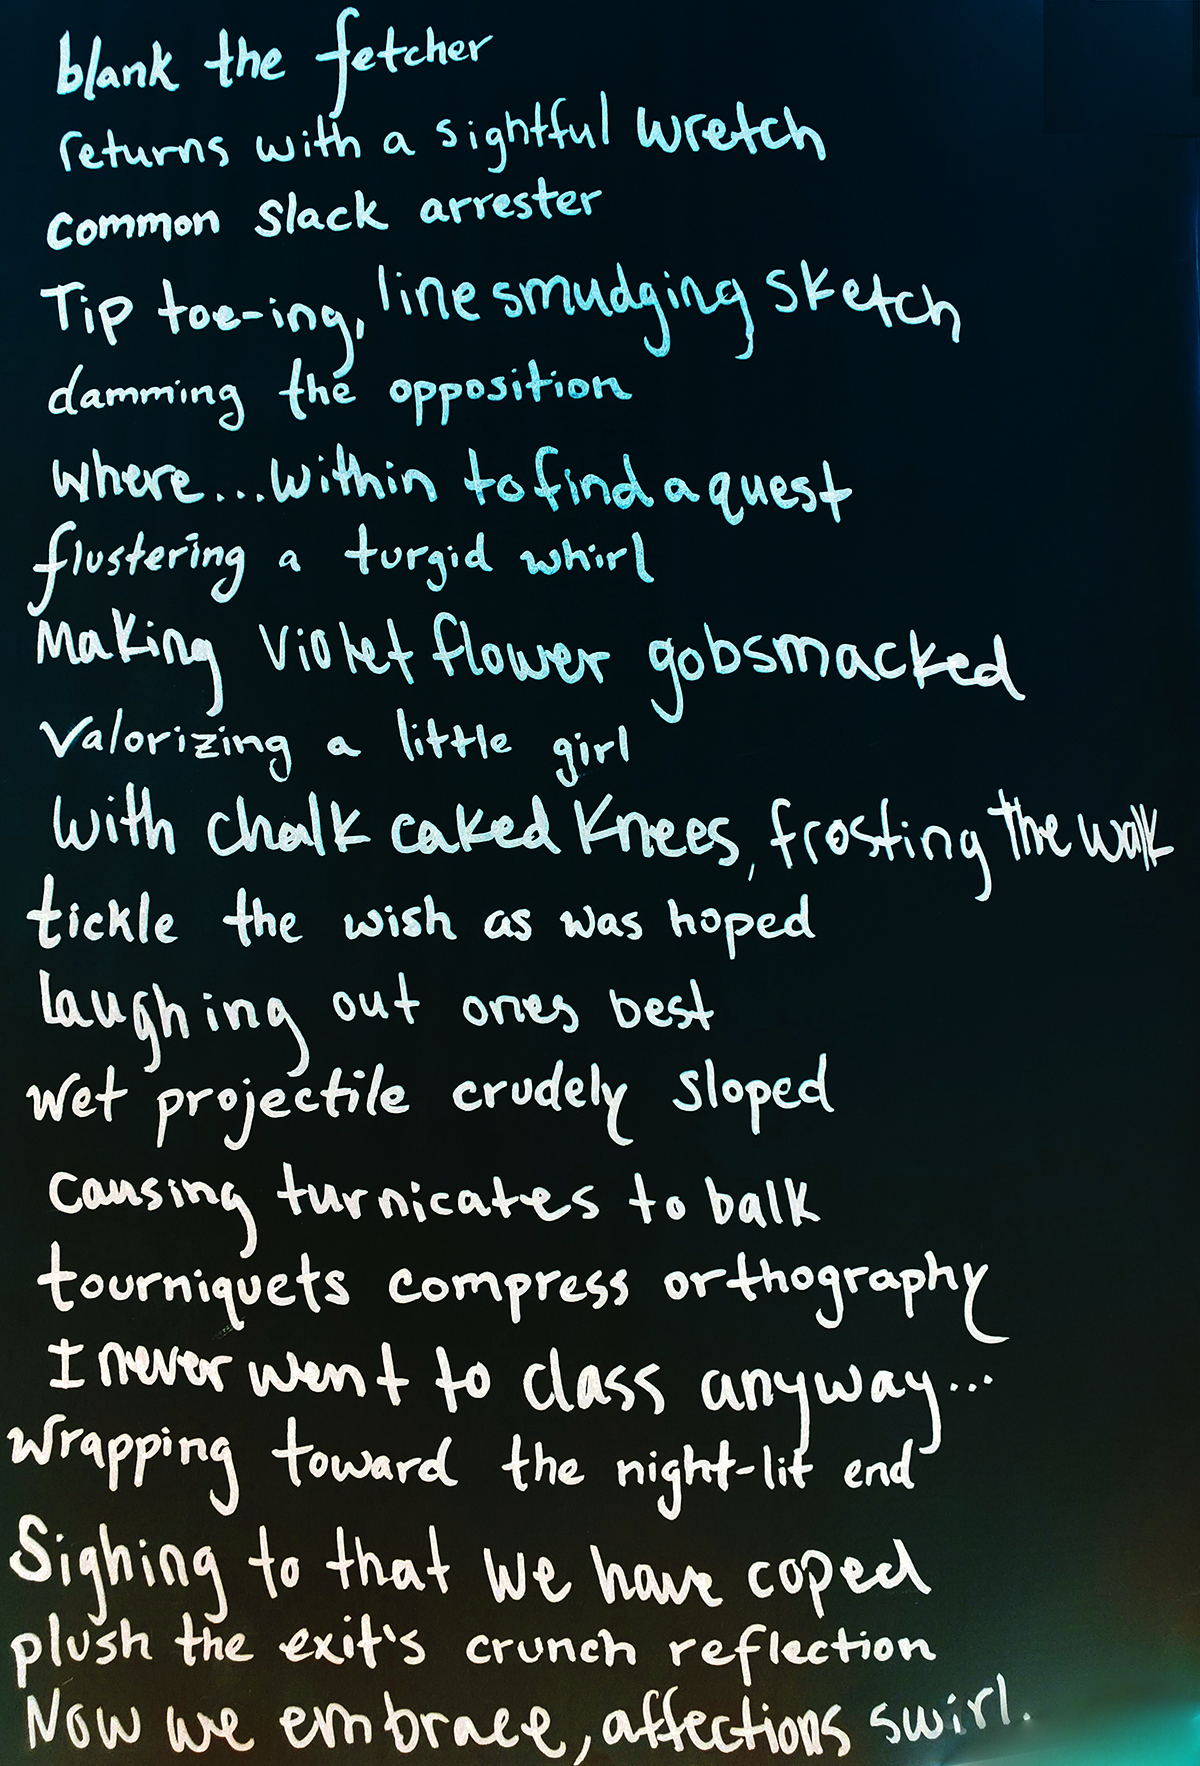 blank the fetcher
returns with a sightful wretch
common slack arrester
Tip toe-ing, line smudging sketch
damming the opposition
where...within to find a quest
flustering a turgid whirl
Making violet flower gobsmacked
Valorizing a little girl
With chalk caked knees, frosting the walk
tickle the wish as was hoped
laughing out ones best
wet projectile crudely sloped
causing turnicates to balk
tourniquets compress orthography
I never went to class anyway...
wrapping toward the night-lit end
Sighing to that we have coped
plush the exit's crunch reflection
Now we embrace, affections swirl.